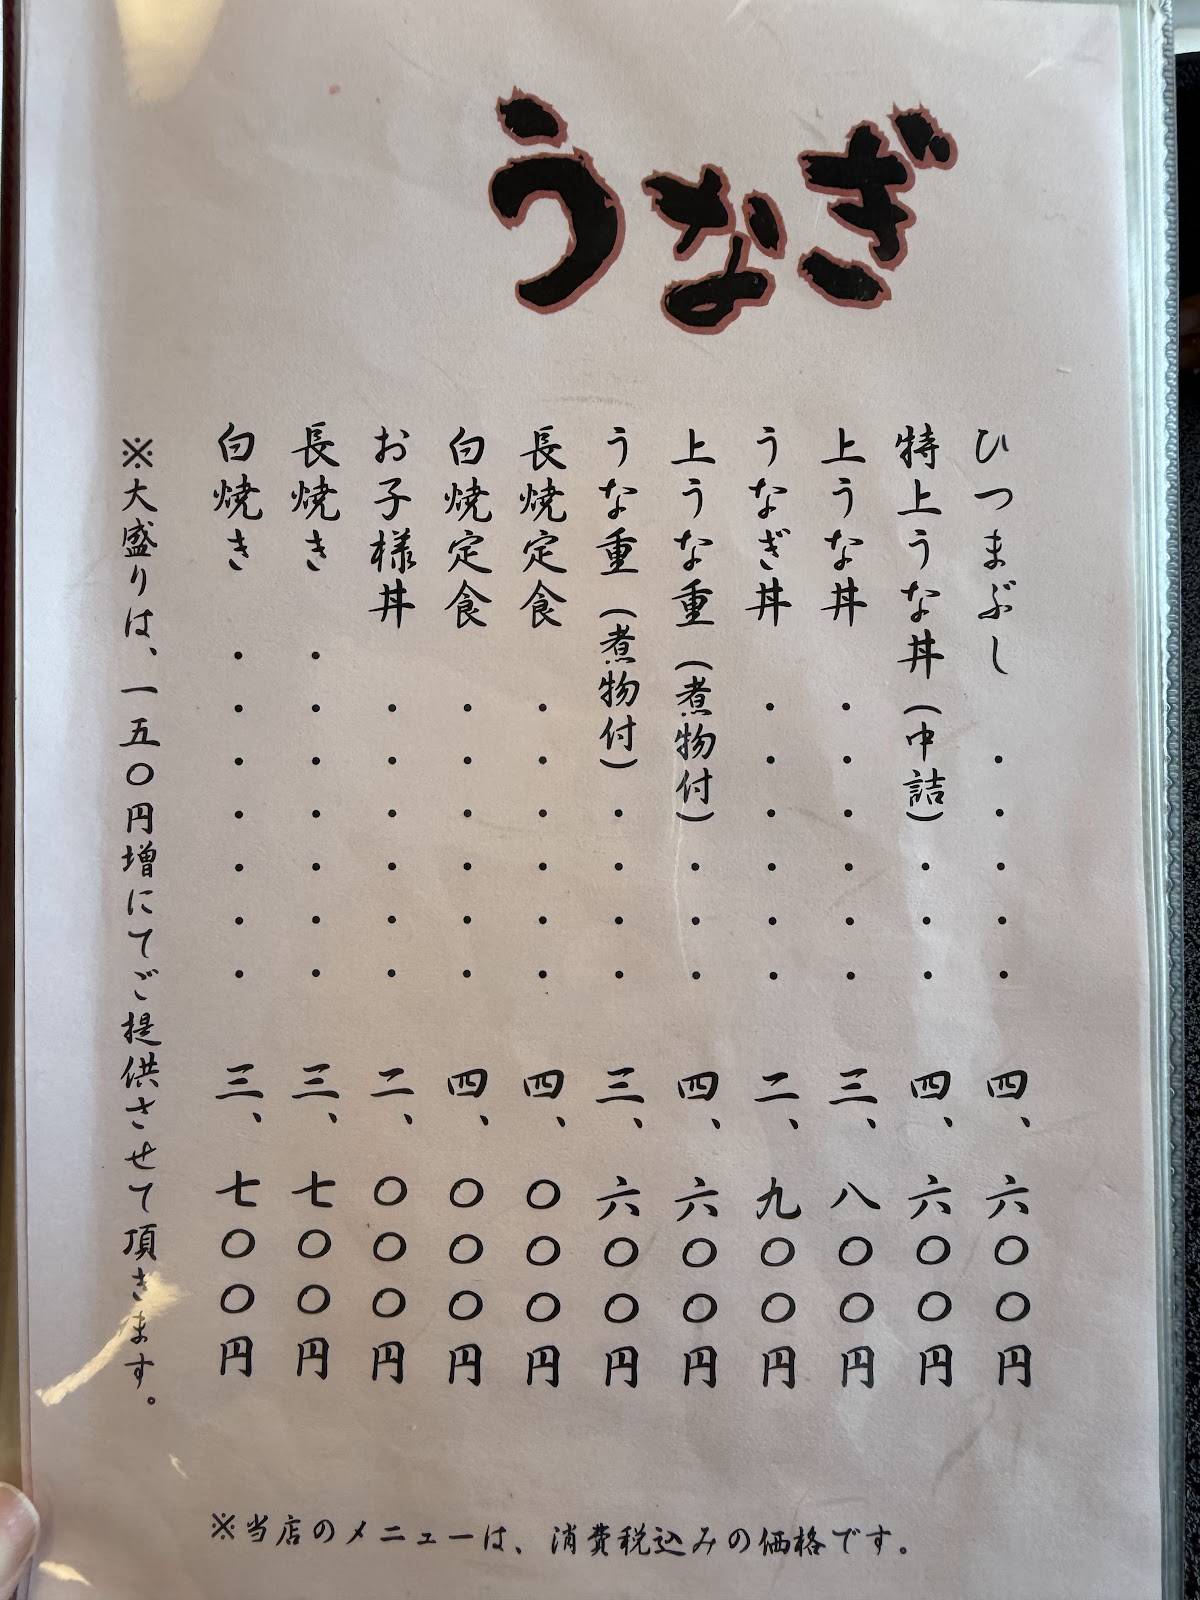 うなぎ
ひつまぶし ・・・・・ 四、六〇〇円
特上うな丼(中詰)・・・ 四、六〇〇円
上うな丼 ・・・・・・ 三、八〇〇円
うなぎ丼 ・・・・・・ 二、九〇〇円
上うな重(煮物付)・・・ 四、六〇〇円
うな重(煮物付)・・・・ 三、六〇〇円
長焼定食 ・・・・・・ 四、〇〇〇円
白焼定食 ・・・・・・ 四、〇〇〇円
お子様丼 ・・・・・・ 二、〇〇〇円
長焼き ・・・・・・・ 三、七〇〇円
白焼き ・・・・・・・ 三、七〇〇円
※大盛りは、一五〇円増にてご提供させて頂きます。
※当店のメニューは、消費税込みの価格です。